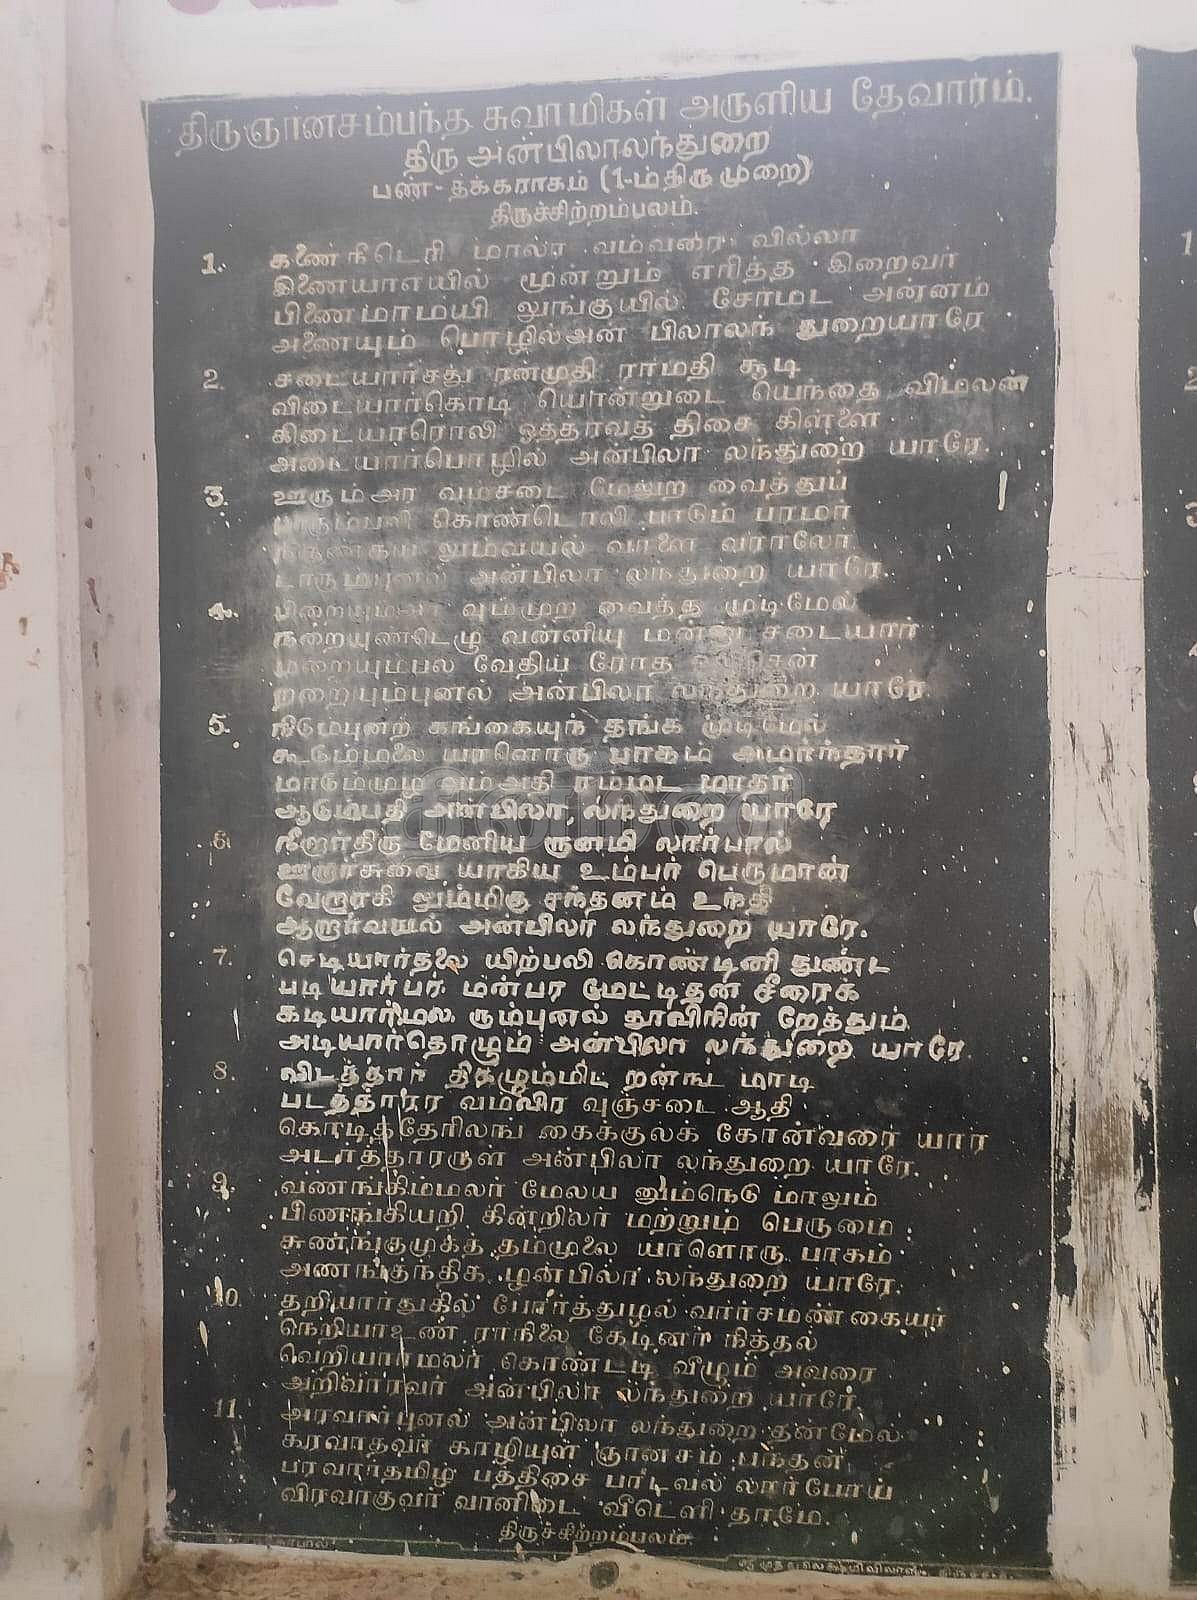 திருஞானசம்பந்த சுவாமிகள் அருளிய தேவாரம்.
திரு அன்பிலாலந்துறை
பண்-தக்கராகம் (1-ம்திருமுறை)
திருச்சிற்றம்பலம்.
1. கணைநீடெரி மாலர வம்வரை வில்லா
இணையாஎயில் மூன்றும் எரித்த இறைவர்
பிணைமாமயி லுங்குயில் சேர்மட அன்னம்
அணையும் பொழில்அன் பிலாலந் துறையாரே
2. சடையார்சது ரன்முதி ராமதி சூடி
விடையார்கொடி யொன்றுடை யெந்தை விமலன்
கிடையாரொலி ஓத்தரவத் திசை கிள்ளை
அடையார்பொழில் அன்பிலா லந்துறை யாரே.
3. ஊரும்அர வம்சடை மேலுற வைத்துப்
பாரும்பலி கொண்டொலி பாடும் பரமர்
நீருண்கய லும்வயல் வாளை வராலோ
டாரும்புனல் அன்பிலா லந்துறை யாரே.
4. பிறையும்அர வும்முற வைத்த முடிமேல்
நறையுண்டெழு வன்னியு மன்னு சடையார்
மறையும்பல வேதிய ரோத
றறையும்புனல் அன்பிலா லந்துறை யாரே.
5. நீடும்புனற் கங்கையுந் தங்க முடிமேல்
கூடும்மலை யாளொரு பாகம் அமர்ந்தார்
மாடும்முழ வம்அதி ரம்மட மாதர்
ஆடும்பதி அன்பிலா லந்துறை யாரே
6. நீறார்திரு மேனிய ரூனமி லார்பால்
ஊறார்சுவை யாகிய உம்பர் பெருமான்
வேறாரகி லும்மிகு சந்தனம் உந்தி
ஆறார்வயல் அன்பிலா லந்துறை யாரே.
7. செடியார்தலை யிற்பலி கொண்டினி துண்ட
படியார்பர மன்பர மேட்டிதன் சீரைக்
கடியார்மல ரும்புனல் தூவிநின் றேத்தும்
அடியார்தொழும் அன்பிலா லந்துறை யாரே.
8. விடத்தார் திகழும்மிட றன்நட மாடி
படத்தாரர வம்விர வுஞ்சடை ஆதி
கொடித்தேரிலங் கைக்குலக் கோன்வரை யார
அடர்த்தாரருள் அன்பிலா லந்துறை யாரே.
9. வணங்கிம்மலர் மேலய னும்நெடு மாலும்
பிணங்கியறி கின்றிலர் மற்றும் பெருமை
சுணங்குமுகத் தம்முலை யாளொரு பாகம்
அணங்குந்திக ழன்பிலா லந்துறை யாரே.
10. தறியார்துகில் போர்த்துழல் வார்சமண்கையர்
நெறியாஉண ராநிலை கேடினர் நித்தல்
வெறியார்மலர் கொண்டடி வீழும் அவரை
அறிவாரவர் அன்பிலா லந்துறை யாரே.
11. அரவார்புனல் அன்பிலா லந்துறை தன்மேல்
கரவாதவர் காழியுள் ஞானசம் பந்தன்
பரவார்தமிழ் பத்திசை பாடவல் லார்போய்
விரவாகுவர் வானிடை வீடெளி தாமே.
திருச்சிற்றம்பலம்.